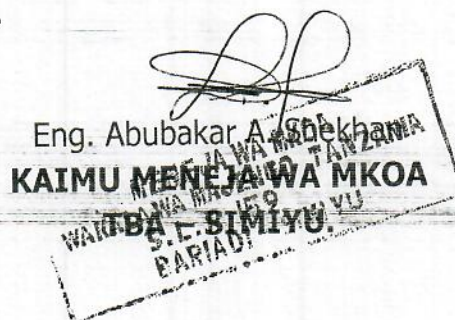 Eng. Abubakar A. Shekhan
KAIMU MENEJA WA MKOA
TBA - SIMIYU.
MENEJA WA MKOA
WAKALA WA MAJENGO TANZANIA
BARIADI - SIMIYU